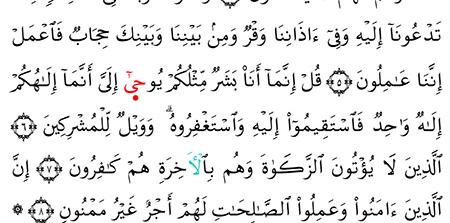 تَدْعُونَآ إِلَيْهِ وَفِىٓ ءَاذَانِنَا وَقْرٌ وَمِنۢ بَيْنِنَا وَبَيْنِكَ حِجَابٌ فَٱعْمَلْ
إِنَّنَا عَـٰمِلُونَ ﴿٥﴾ قُلْ إِنَّمَآ أَنَا۠ بَشَرٌ مِّثْلُكُمْ يُوحَىٰٓ إِلَىَّ أَنَّمَآ إِلَـٰهُكُمْ
إِلَـٰهٌ وَٰحِدٌ فَٱسْتَقِيمُوٓا۟ إِلَيْهِ وَٱسْتَغْفِرُوهُ ۗ وَوَيْلٌ لِّلْمُشْرِكِينَ ﴿٦﴾
ٱلَّذِينَ لَا يُؤْتُونَ ٱلزَّكَوٰةَ وَهُم بِٱلْأَخِرَةِ هُمْ كَـٰفِرُونَ ﴿٧﴾ إِنَّ
ٱلَّذِينَ ءَامَنُوا۟ وَعَمِلُوا۟ ٱلصَّـٰلِحَـٰتِ لَهُمْ أَجْرٌ غَيْرُ مَمْنُونٍ ﴿٨﴾ ۞